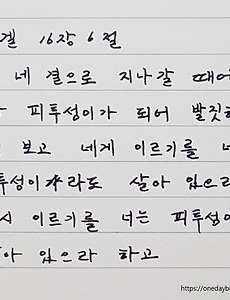 겔 16장 6절
네 곁으로 지나갈 때에
피투성이가 되어 발짓하
보고 네게 이르기를 너
투성이라도 살아 있으라
시 이르기를 너는 피투성이
아 있으라 하고
https://onedaybi